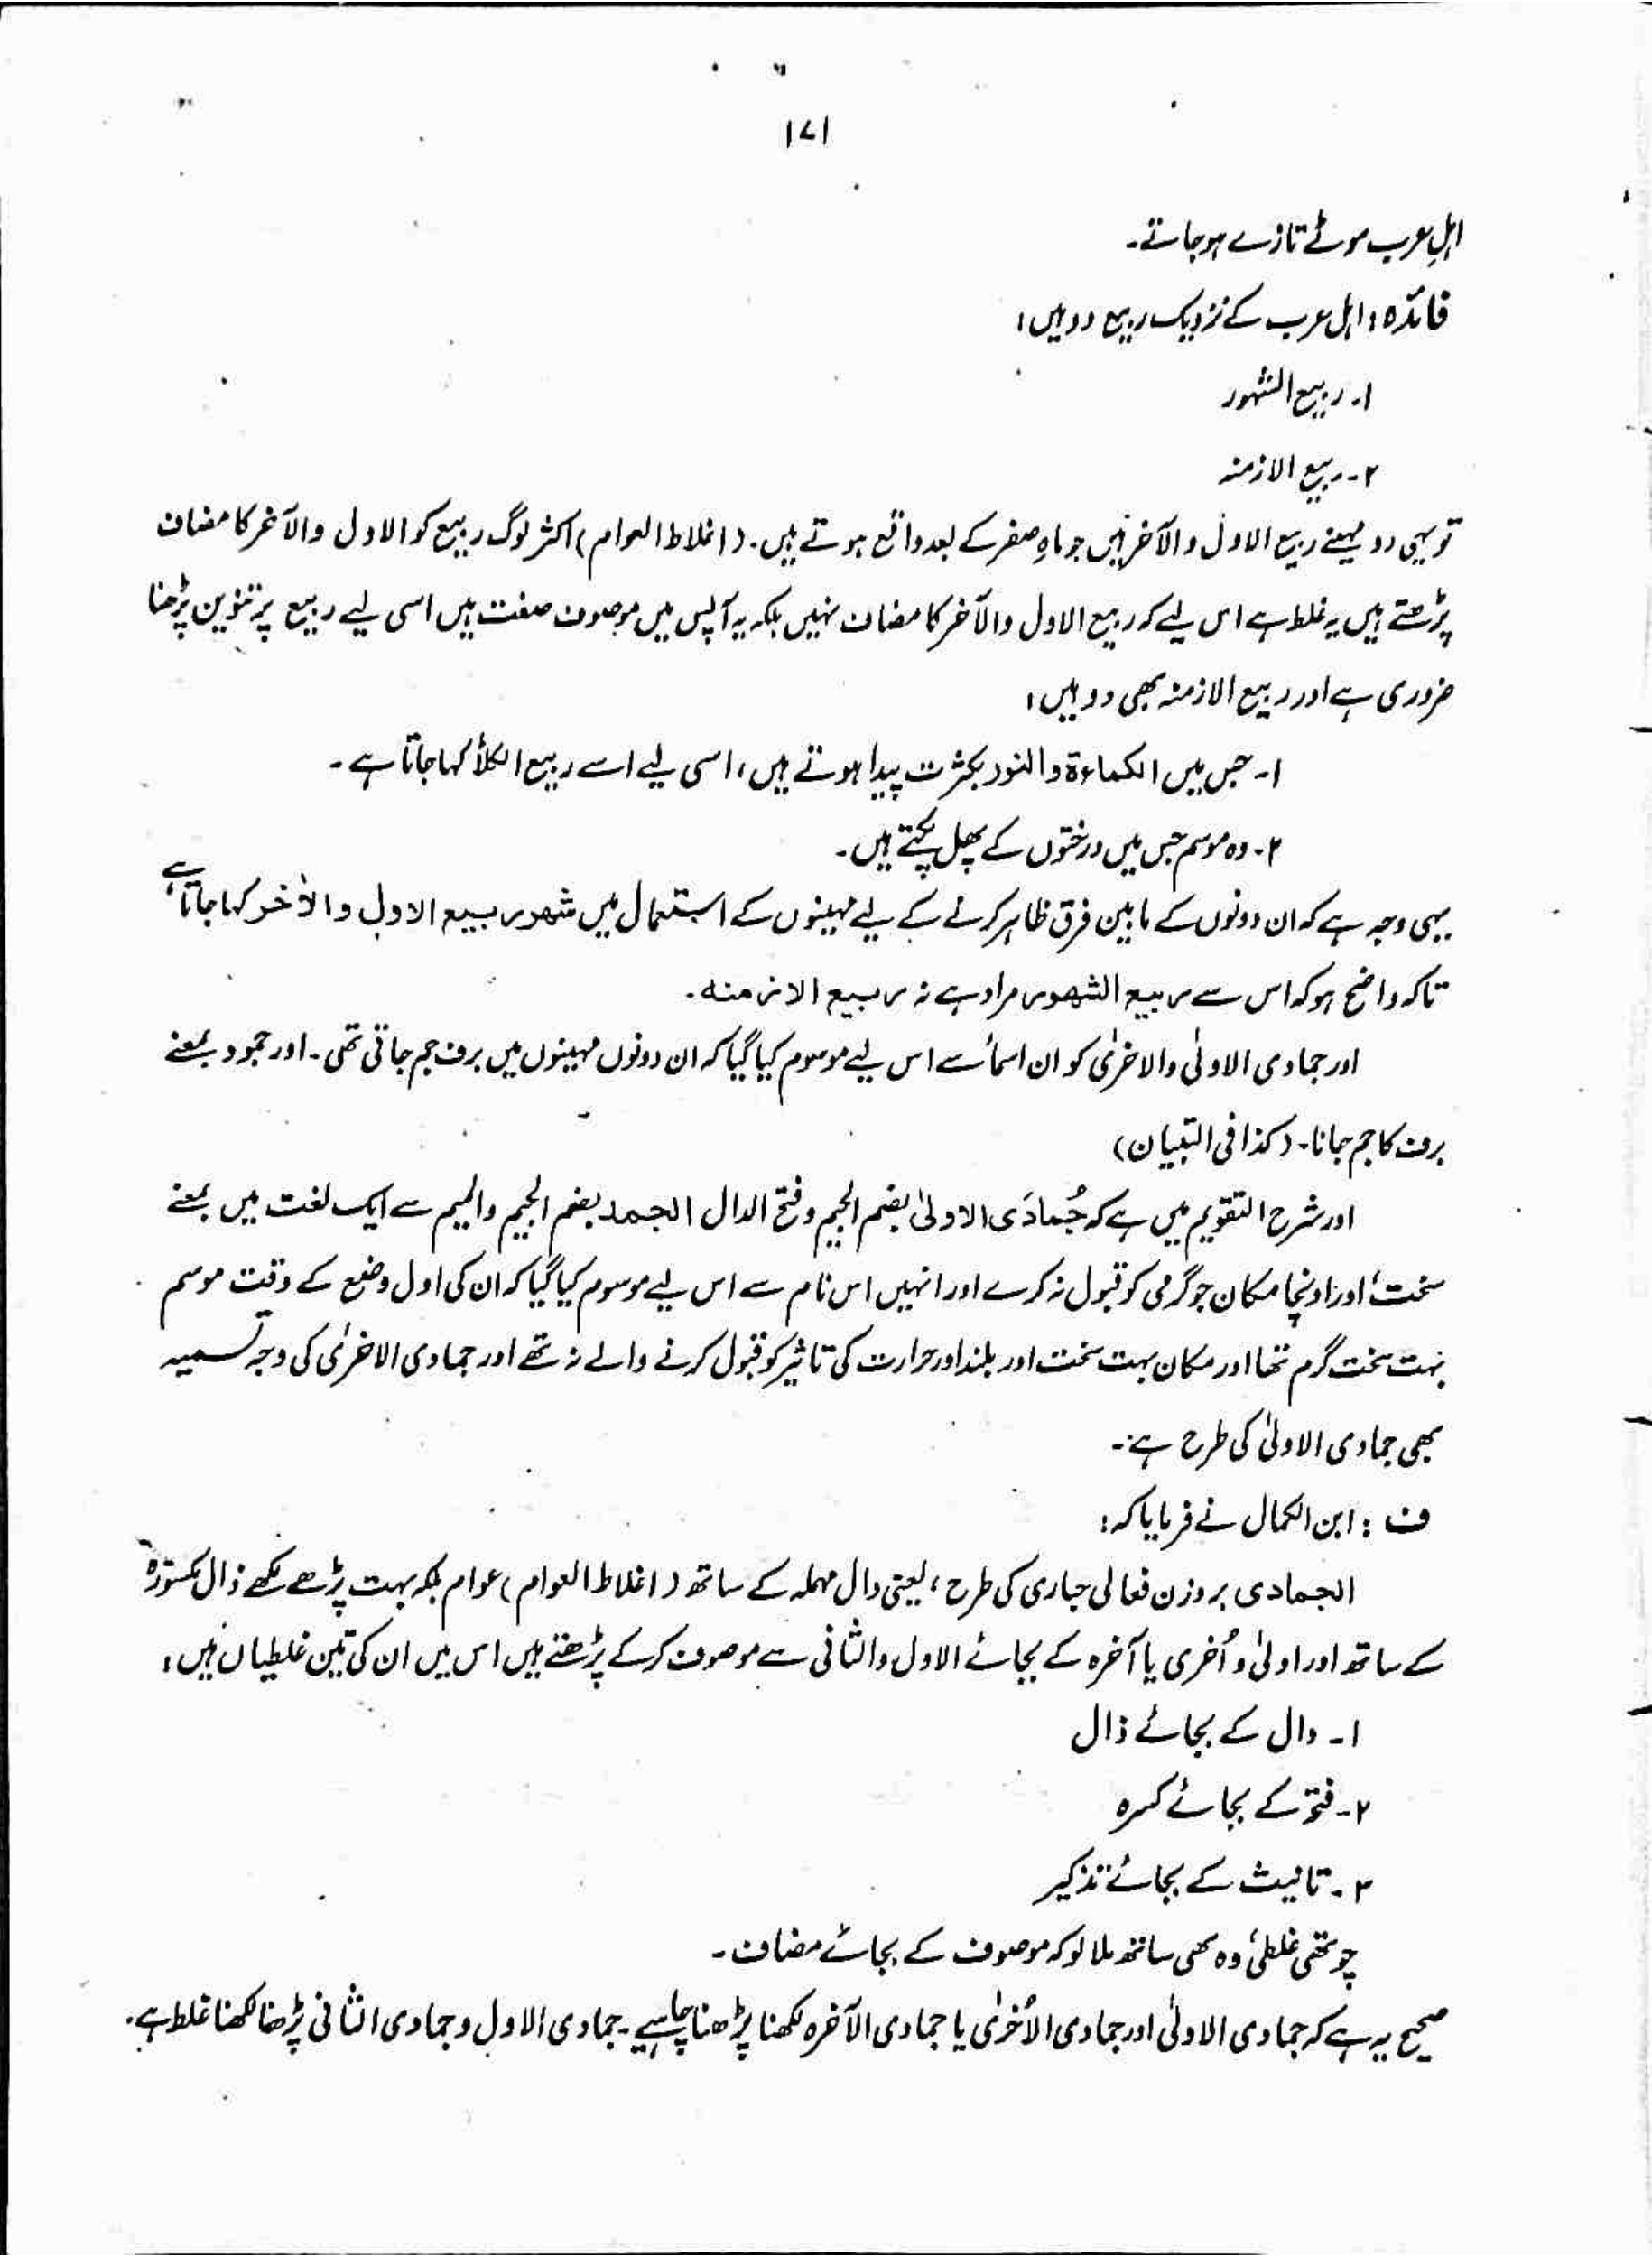 ۱۷۱
اہلِ عرب موٹے تازے ہوجاتے۔
فائدہ: اہل عرب کے نزدیک ربیع دو ہیں:
۱۔ ربیع الشہور
۲۔ ربیع الازمنہ
تو یہی دو مہینے ربیع الاول والآخر ہیں جو ماہِ صفر کے بعد واقع ہوتے ہیں۔ (اغلاط العوام) اکثر لوگ ربیع کو الاول والآخر کا مضاف
پڑھتے ہیں یہ غلط ہے اس لیے کہ ربیع الاول والآخر کا مضاف نہیں بلکہ یہ آپس میں موصوف صفت ہیں اسی لیے ربیع پر تنوین پڑھنا
ضروری ہے اور ربیع الازمنہ بھی دو ہیں:
۱۔ جس میں الکماءۃ والنور بکثرت پیدا ہوتے ہیں، اسی لیے اسے ربیع الکلأ کہا جاتا ہے۔
۲۔ وہ موسم جس میں درختوں کے پھل پکتے ہیں۔
یہی وجہ ہے کہ ان دونوں کے مابین فرق ظاہر کرنے کے لیے مہینوں کے استعمال میں شھر ربیع الاول والاٰخر کہا جاتا ہے
تاکہ واضح ہو کہ اس سے ربیع الشھور مراد ہے نہ ربیع الازمنہ۔
اور جمادی الاولیٰ والاخریٰ کو ان اسمأ سے اس لیے موسوم کیا گیا کہ ان دونوں مہینوں میں برف جم جاتی تھی۔ اور جمود بمعنے
برف کا جم جانا۔ (کذا فی التبیان)
اور شرح التقویم میں ہے کہ جُمادَی الاولیٰ بضم الجیم وفتح الدال الجمد بضم الجیم والمیم سے ایک لغت میں بمعنے
سخت اور اونچا مکان جو گرمی کو قبول نہ کرے اور انہیں اس نام سے اس لیے موسوم کیا گیا کہ ان کی اول وضع کے وقت موسم
بہت سخت گرم تھا اور مکان بہت سخت اور بلند اور حرارت کی تاثیر کو قبول کرنے والے نہ تھے اور جمادی الاخریٰ کی وجہ تسمیہ
بھی جمادی الاولیٰ کی طرح ہے۔
ف : ابن الکمال نے فرمایا کہ:
الجمادی بروزن فعالی حباری کی طرح، یعنی دال مہملہ کے ساتھ (اغلاط العوام) عوام بلکہ بہت پڑھے لکھے ذال مکسورہ
کے ساتھ اور اولیٰ و اُخری یا آخرہ کے بجائے الاول والثانی سے موصوف کرکے پڑھتے ہیں اس میں ان کی تین غلطیاں ہیں:
۱۔ دال کے بجائے ذال
۲۔ فتحہ کے بجائے کسرہ
۳۔ تانیث کے بجائے تذکیر
چوتھی غلطی وہ بھی ساتھ ملا لو کہ موصوف کے بجائے مضاف۔
صحیح یہ ہے کہ جمادی الاولیٰ اور جمادی الاُخریٰ یا جمادی الآخرہ لکھنا پڑھنا چاہیے۔ جمادی الاول و جمادی الثانی پڑھنا لکھنا غلط ہے۔